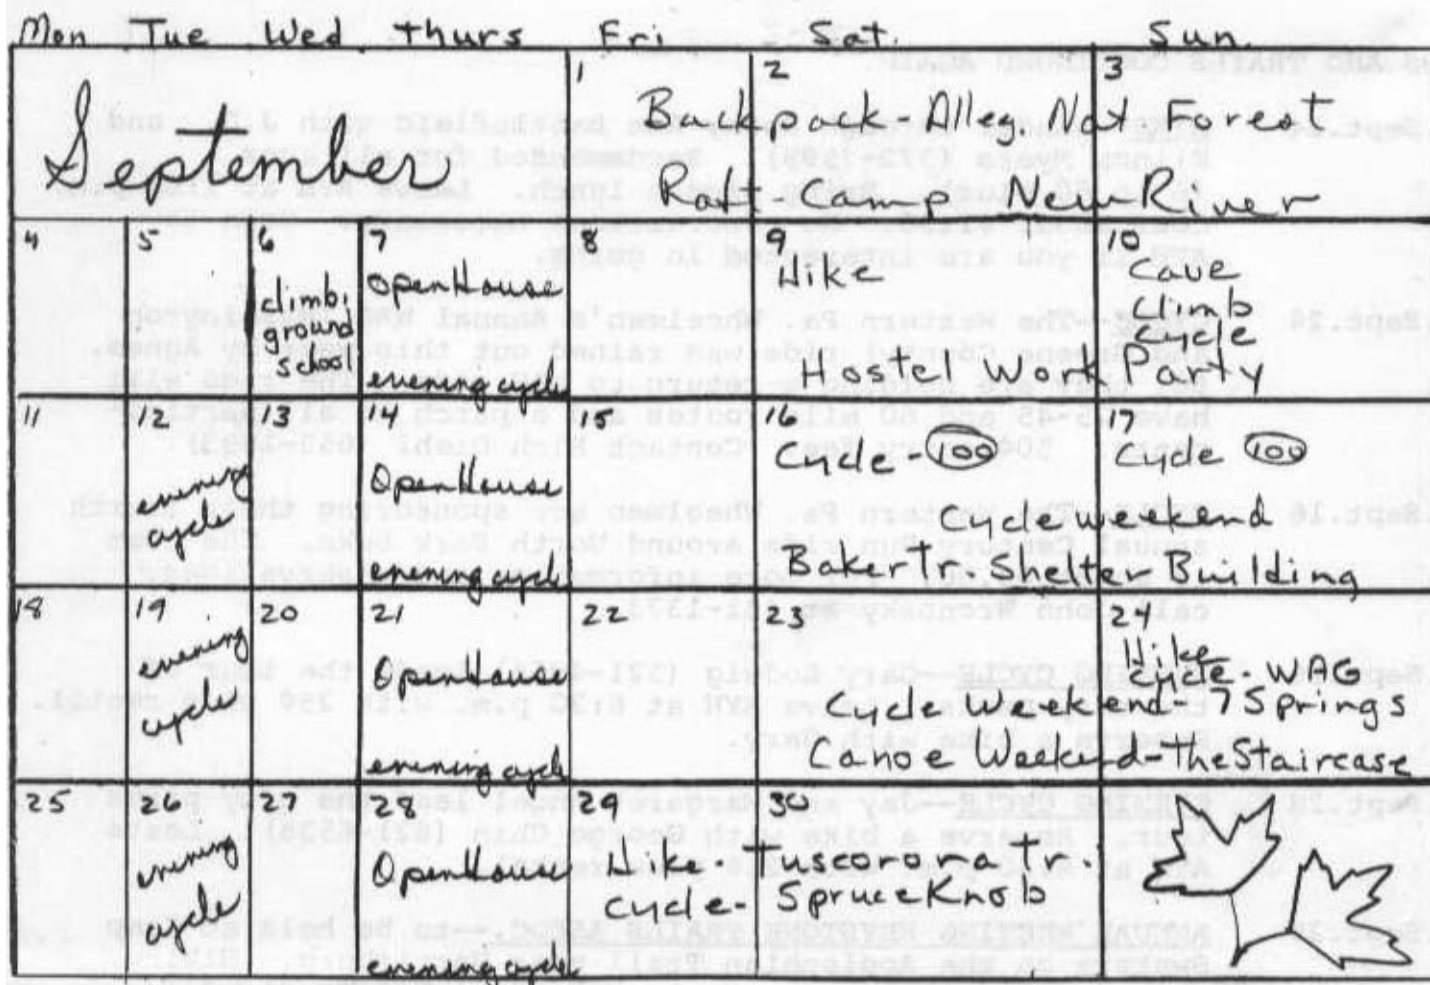 Mon Tue Wed Thurs Fri Sat. Sun.
September
1 2 3
Backpack-Alleg. Nat Forest
Raft-Camp New River
4 5 6 7 8 9 10
climbi
ground
school
Open House
evening cycle
Hike
Cave
Climb
Cycle
Hostel Work Party
11 12 13 14 15 16 17
evening
cycle
Open House
evening cycle
Cycle- 100
Cycle 100
Cycle weekend
Baker Tr. Shelter Building
18 19 20 21 22 23 24
evening
cycle
Open House
evening cycle
Hike
Cycle - WAG
Cycle Weekend 7 Springs
Canoe Weekend-The Staircase
25 26 27 28 29 30
evening
cycle
Open House
evening cycle
Hike- Tuscorora Tr.
Cycle- Spruce Knob